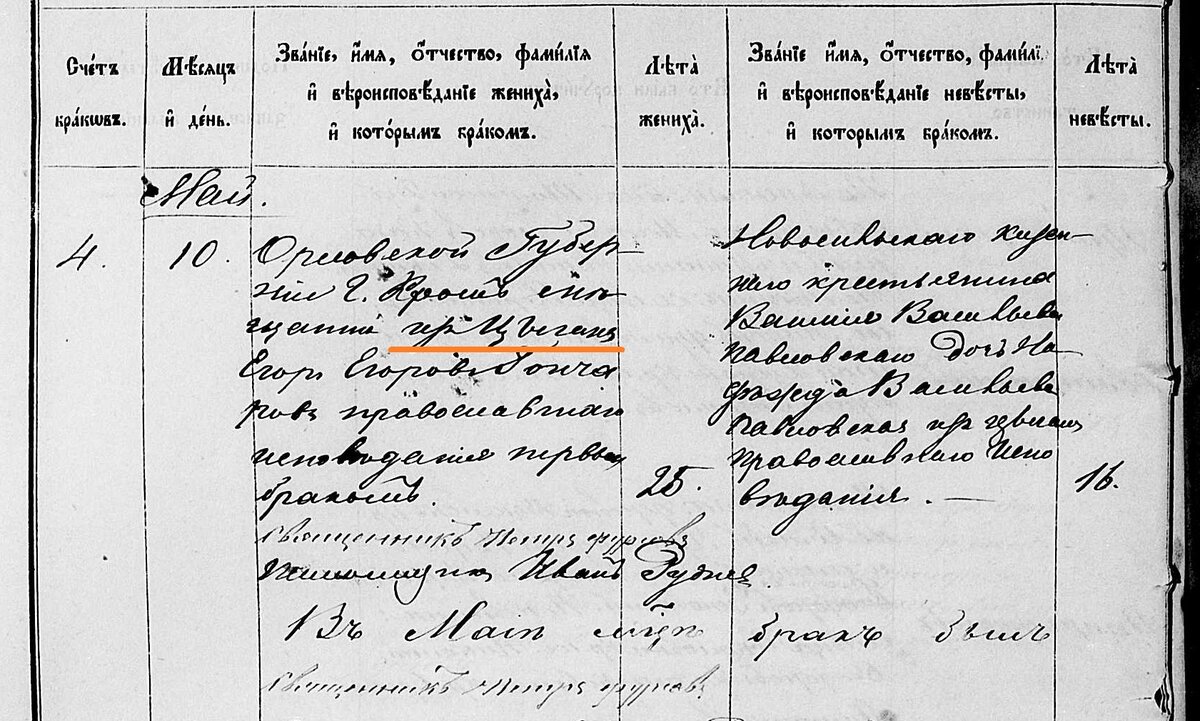 Сче́тъ
бра́ковъ.
Мѣ́сяцъ
и҆ де́нь.
Зва́нїе, и҆́мя, ѻ҆́тчество, фами́лїя
и҆ вѣроисповѣ́данїе жениха̀,
и҆ кото́рымъ бра́комъ.
Лѣ́та
жениха̀.
Зва́нїе и҆́мя, ѻ҆́тчество, фами́лї
и҆ вѣроисповѣ́данїе невѣ́сты,
и҆ кото́рымъ бра́комъ.
Лѣ́та
невѣ́сты.
Май.
4.
10.
Орловской Губер-
ніи Г. Кромъ мѣ-
щанинъ Цыганъ
Егоръ Егоровъ Гонча
ровъ православнаго
исповѣданія первымъ
бракомъ.
25.
Новосильскаго казен-
наго крестьянина
Василія Васильева
Павловскаго дочь На-
дежда Васильева
Павловская
православнаго испо
вѣданія. —
16.
Священникъ Петръ
Иванъ Руднев
Въ Маіи м҃цѣ бракъ былъ
Священникъ Петръ